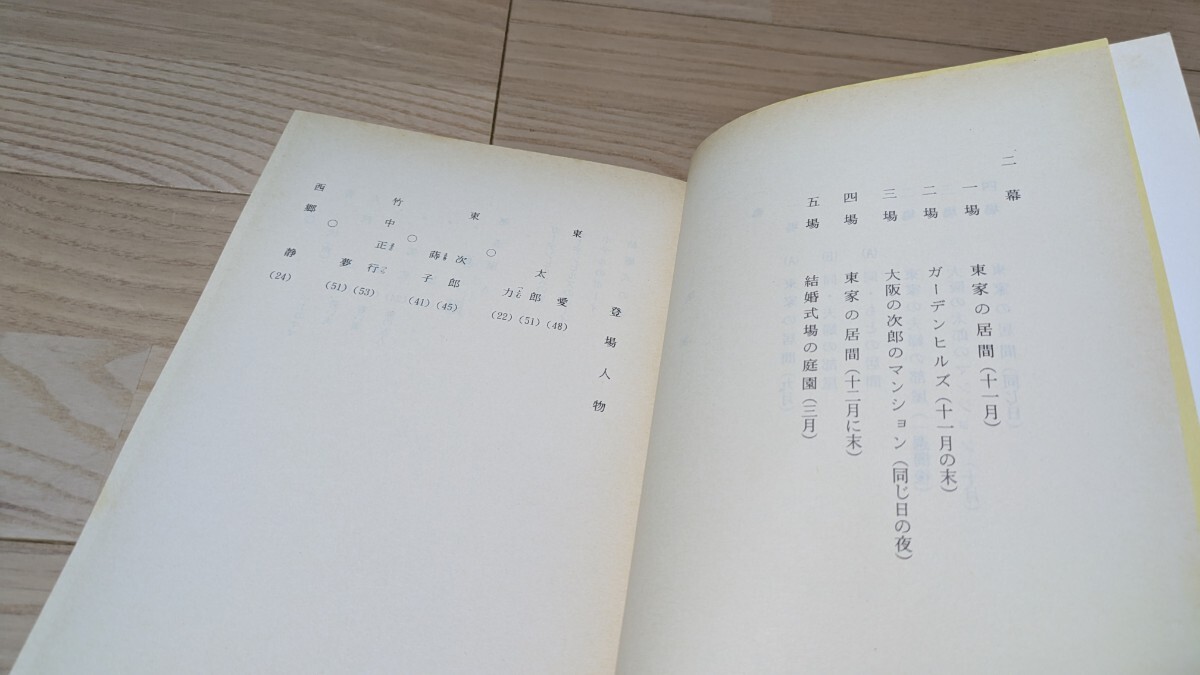 二幕
一場 東家の居間(十一月)
二場 ガーデンヒルズ(十一月の末)
三場 大阪の次郎のマンション(同じ日の夜)
四場 東家の居間(十二月に末)
五場 結婚式場の庭園(三月)
登場人物
東 愛(48)
太郎(51)
力(22)
○
東 次郎(45)
蒔子(41)
○
竹中正行(53)
夢(51)
○
西郷 静(24)